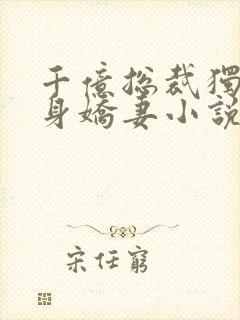 千億總裁獨
身嬌妻小說
宋任窮